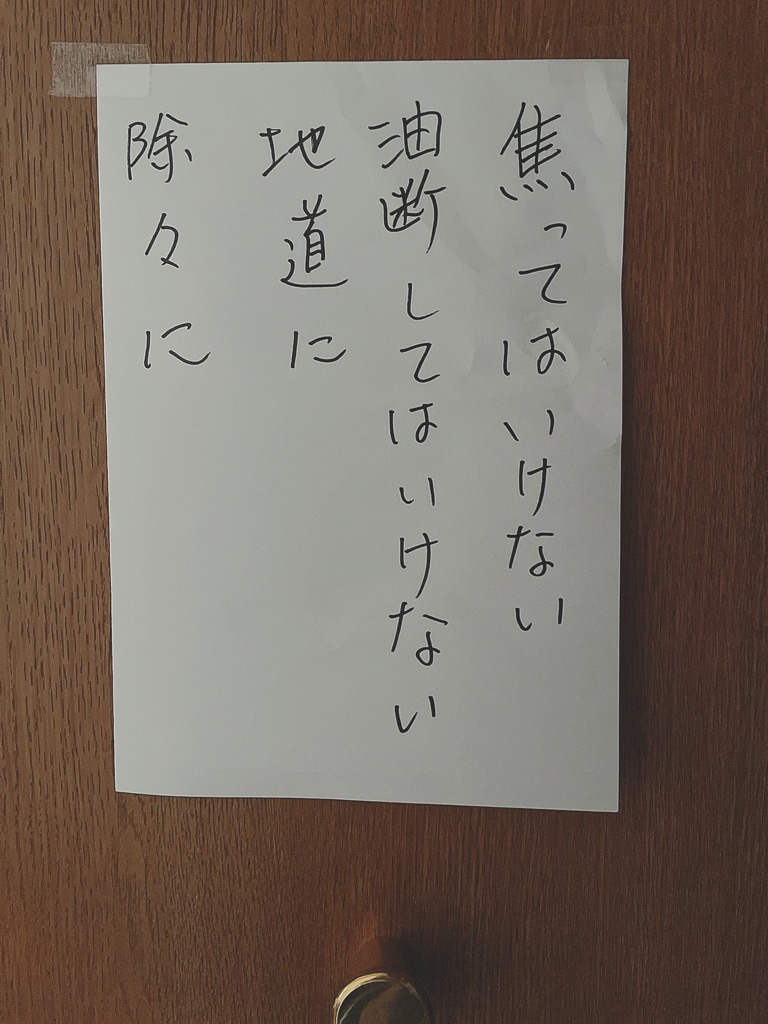 焦ってはいけない
油断してはいけない
地道に
除々に